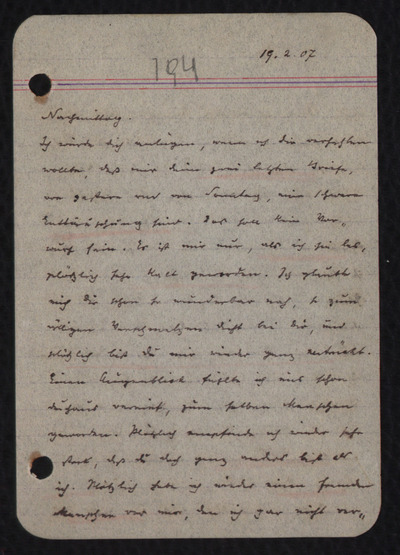 194
19.2.07
Nachmittag.
Ich würde dich anlügen, wenn ich dir verhehlen
wollte, daß mir deine zwei letzten Briefe,
von gestern und von Sonntag, eine schwere
Enttäuschung sind. Das soll kein Vor-
wurf sein. Es ist mir nur, als ich sie las,
plötzlich sehr kalt geworden. Ich glaubte
mich dir schon so wunderbar nah, so zum
völligen Verschmelzen dicht bei dir, und
plötzlich bist du mir wieder ganz entrückt.
Einen Augenblick fühlte ich uns schon
durchaus vereint, zum selben Menschen
geworden. Plötzlich empfinde ich wieder sehr
stark, daß du doch ganz anders bist als
ich. Plötzlich habe ich wieder einen fremden
Menschen vor mir, den ich gar nicht ver-